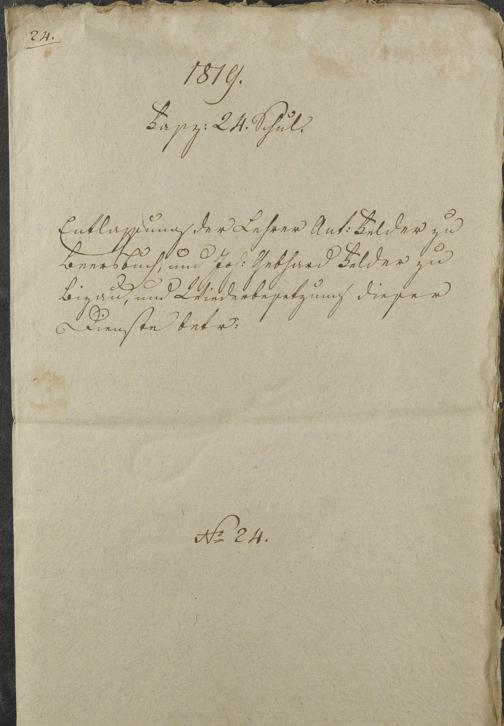 24.
1819.
Fasz: 24. Schul.
Entlassung der Lehrer Ant: Felder zu
und Jos: Gebhard Felder zu
Bizau, und Wiederbesetzung dieser
Dienste betr:
No 24.